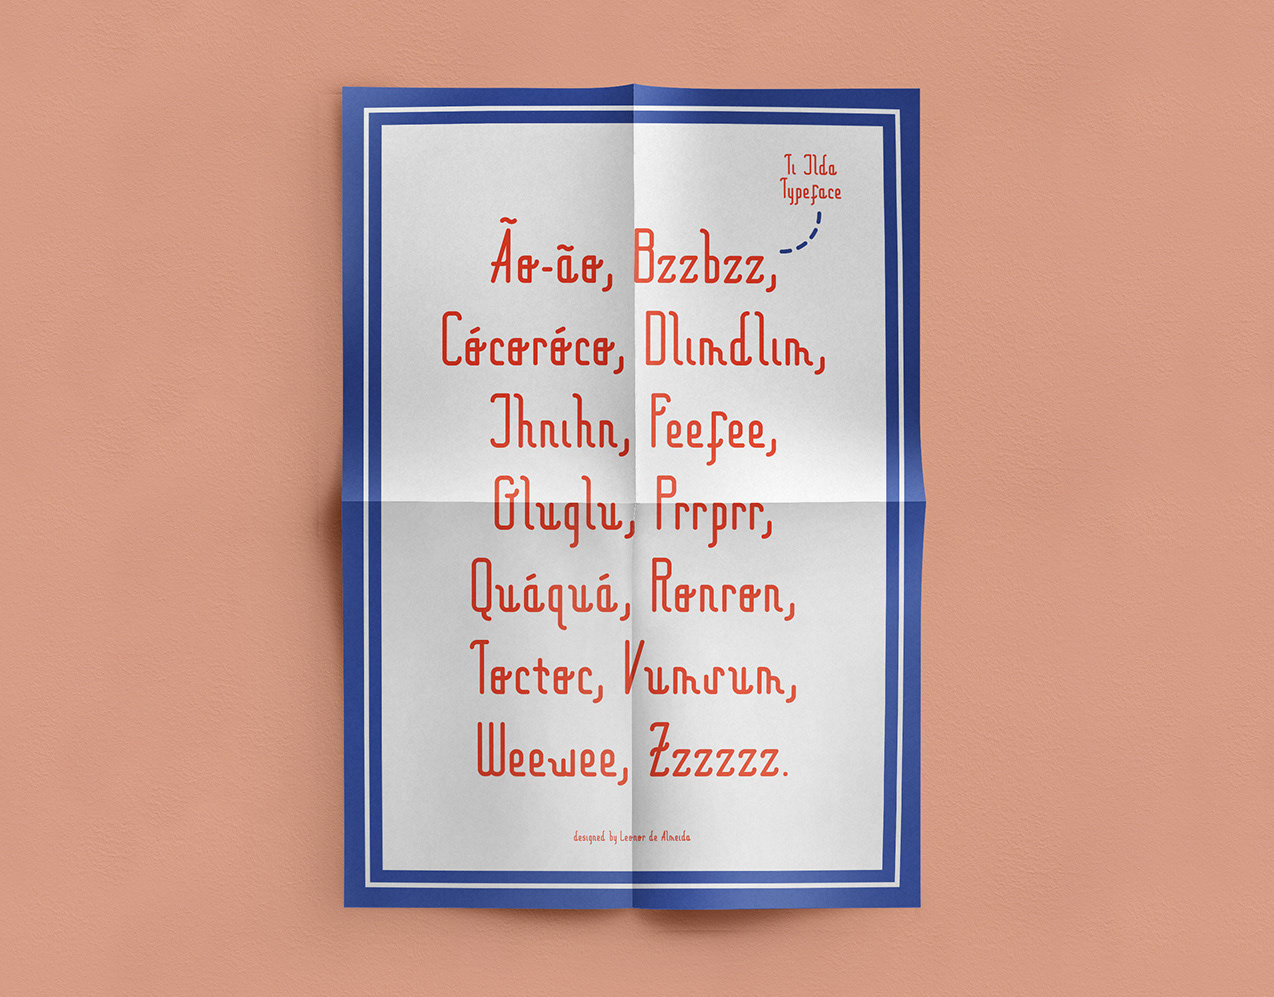 Ti Ilda
Typeface
Ão-ão, Bzzbzz,
Cócoróco, Dlimdlim,
Ihnihn, Feefee,
Gluglu, Prrprr,
Quáquá, Ronron,
Toctoc, Vumvum,
Weewee, Zzzzzz.
designed by Leonor de Almeida